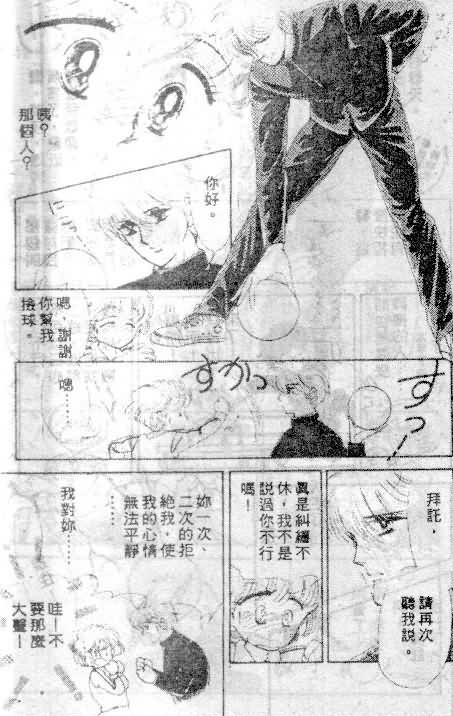 咦?
那個人?
你好。
にこっ
嗯,謝謝
你幫我
撿球。
嗯……
すかっ
すっ!
拜託,
請再次
聽我說。
真是糾纏不
休,我不是
說過你不行
嗎!
妳一次、
二次的拒
絕我,使
我的心情
無法平靜
……
我對妳……
哇—不
要那麼
大聲—